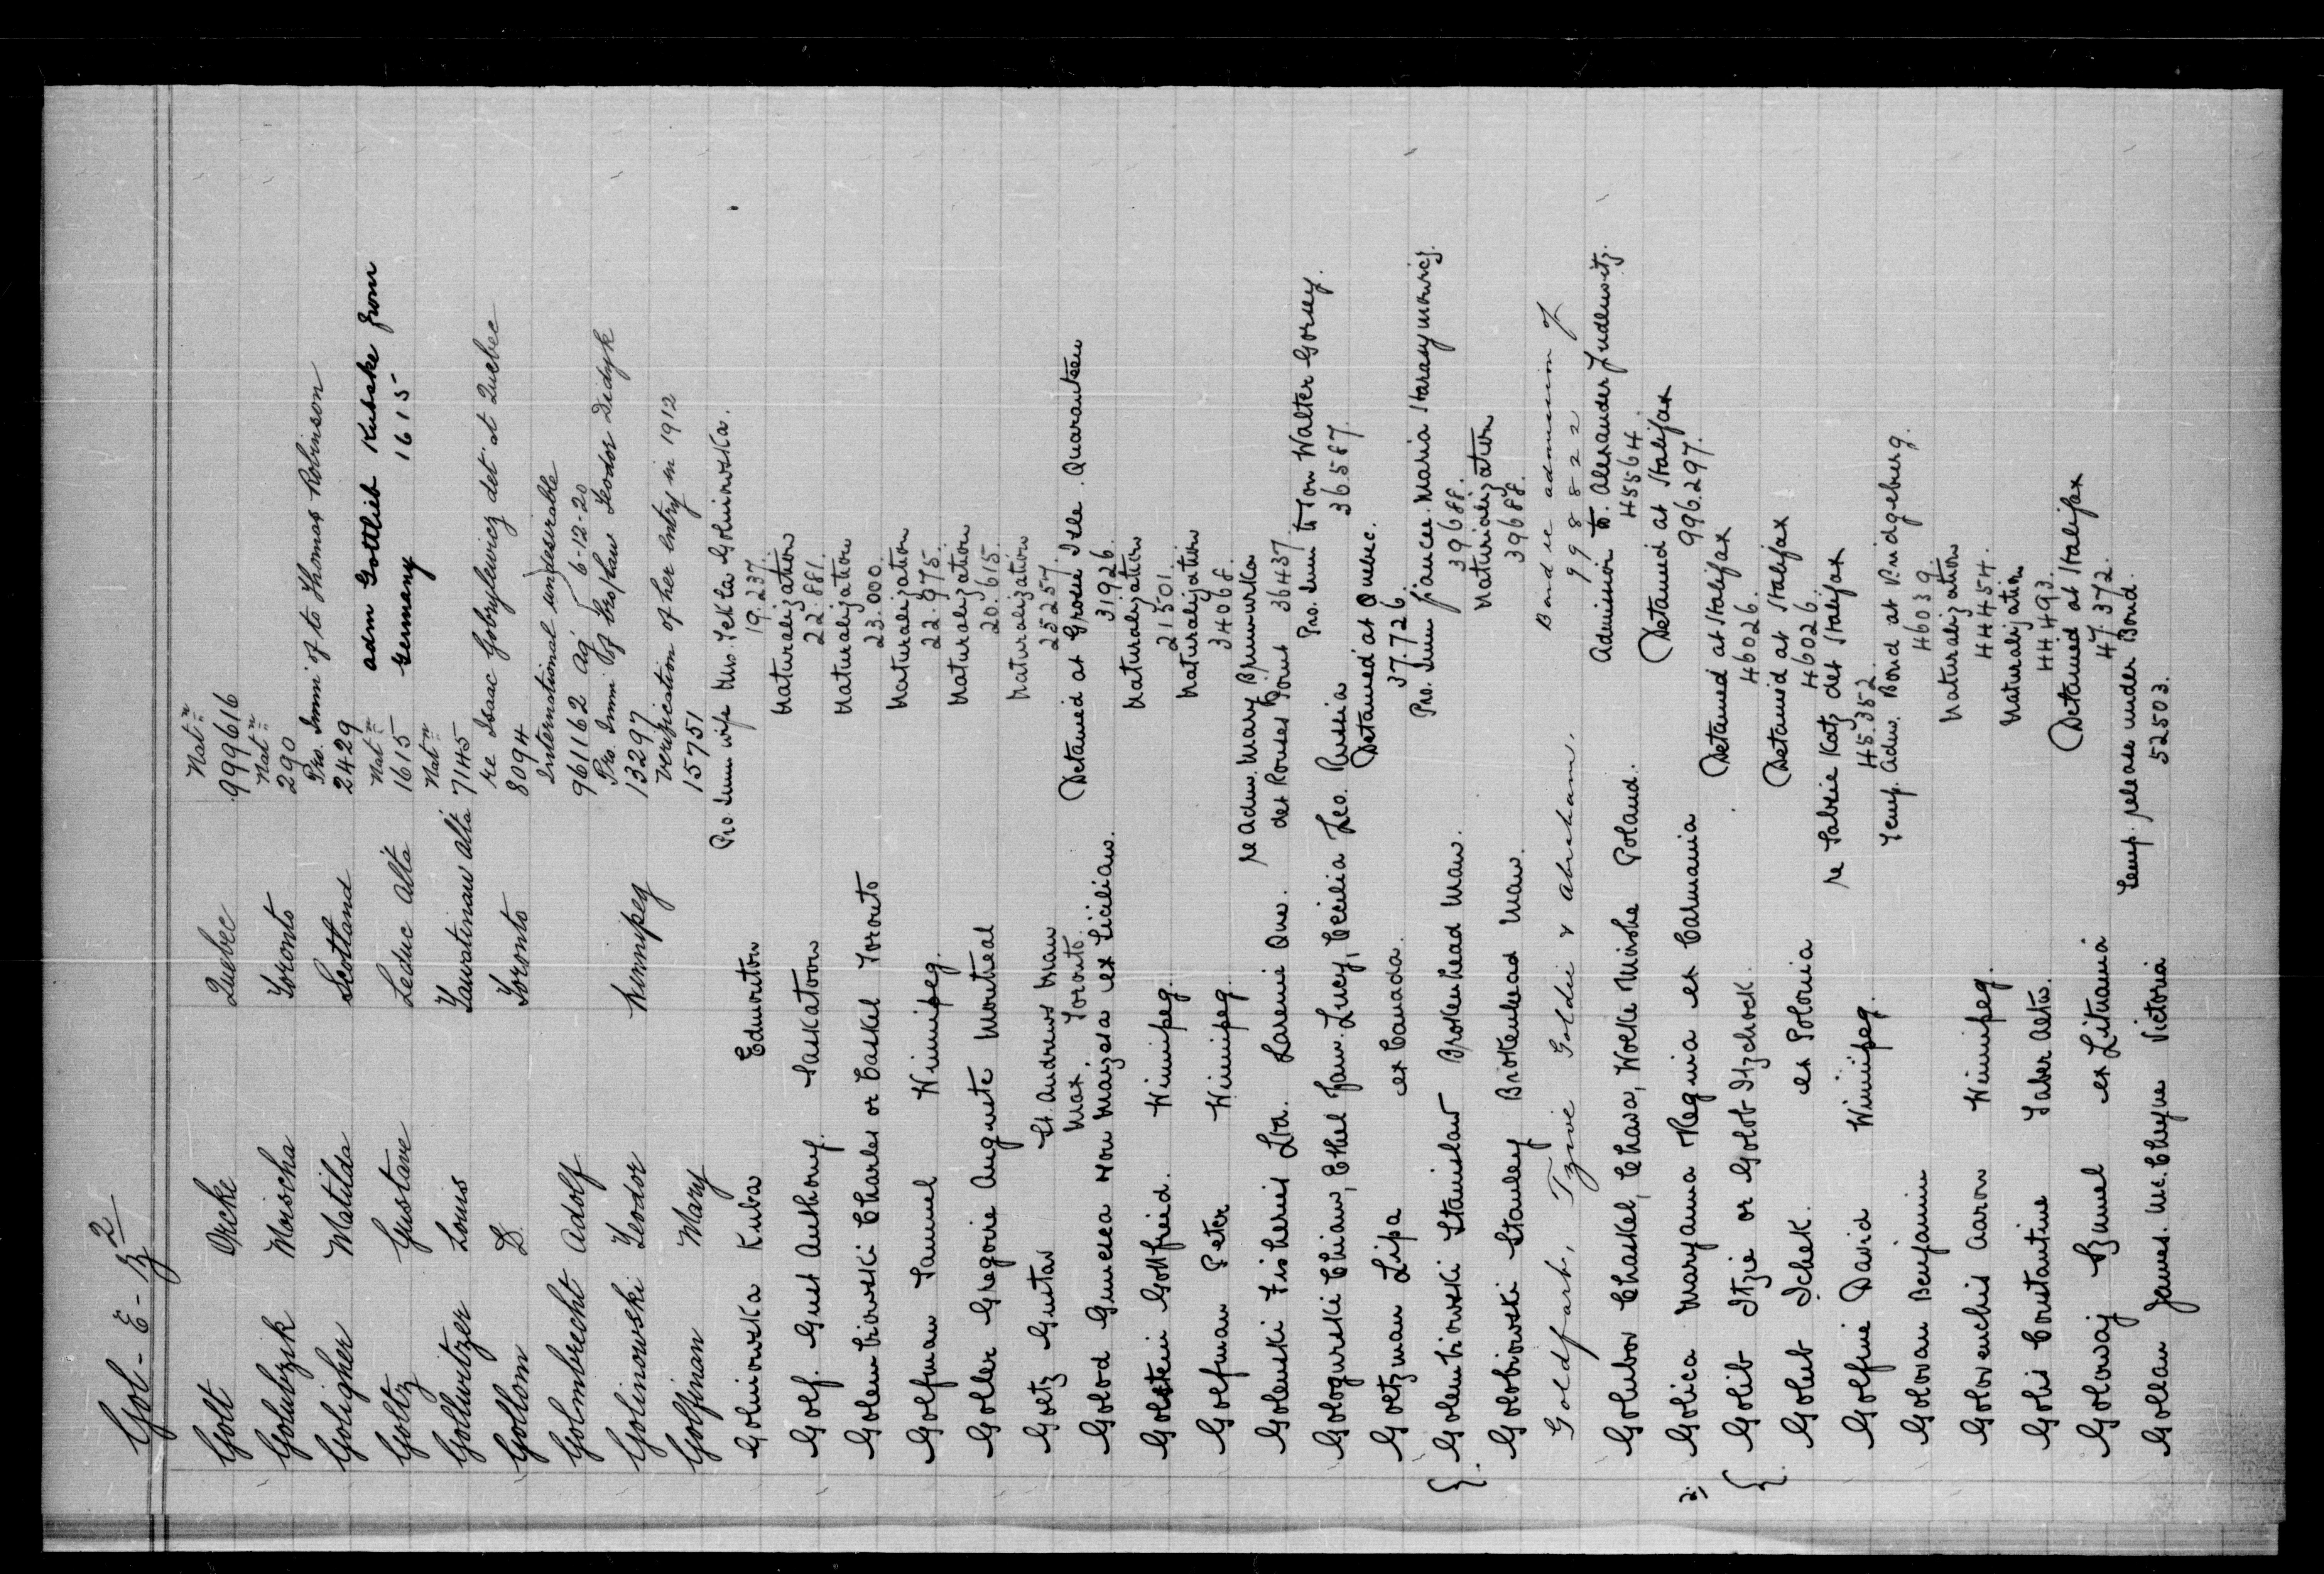 Gol - E - Z 2
Golt Orcke Quebec Natn 999616
Golubzik Moischa Toronto Natn 290
Goligher Matilda Scotland Pro. Immi of to Thomas Robinson 2429
Goltz Gustave Leduc Alta Natn 1615 adm Gottlieb Kubske from Germany 1615
Gollwitzer Louis Tawatinaw Alta Natn 7145
Gollom D. Toronto re Isaac Gobrylewicz det at Quebec 8094
Golmbrecht Adolf International undesirable 961162 Ag 6-12-20
Golinowski Teodor Winnipeg Pro. Immi of Teodor Didyk 13297
Golfman Mary verification of her entry in 1912 15751
Golminowska Kuba Edmonton Pro. Imm wife Mrs. Tekla Golminowska. 19.237.
Golf. Gust Anthony. Saskatoon Naturalization 22.881.
Golembiowski Charles or Caskel Toronto Naturalization 23.000.
Golfman Samuel Winnipeg. Naturalization 22.975.
Goller Gregorie Auguste Montreal Naturalization 20.615.
Goltz Gustav St. Andrews Man Naturalization 25257.
Golod Max Toronto. ex Sicilian. Detained at Grosse Isle Quarantine 31926.
Golstein Gottfried. Winnipeg. Naturalization 21501.
Golfman Peter Winnipeg. Naturalization 34068.
Golenski Fisheries Ltd. Larenie Que. re Adm. Mary Brunwurka det Rouses Point 36437.
Gologurski Chiaw, Ethel Faw. Lucy, Cecilia Leo. Russia Pro. Imm to Jon Walter Gorey. 36.587.
Goltzman Lipa ex Canada. Detained at Quebec. 37.726.
{ Golembiowski Stanislaw Brokenhead Man. Pro. Imm fiancee Maria Harasymowicz. 39688.
Golobiowski Stanley Brokenhead Man. Naturalization 39688.
Goldfarb, Tzive Goldie & Abraham. Bond re admission of 998822
Golubov Chaskel, Chawa, Wolke Mirishe Poland. Admission to Alexander Judlowitz. 45564.
2. Golica Maryanna Regina ex Carmania Detained at Halifax 996.297.
{ Golib Itzie or Golob Itzchock. Detained at Halifax 46026.
Golub Ichek. ex Polonia Detained at Halifax 46026.
Golfine David Winnipeg. re Katz det Halifax 45.352.
Golovan Benjamin Temp. Adm. Bond at Bridgeburg. 46039.
Golovenchis Aaron Winnipeg. Naturalization 44454.
Golis Constantine Taber Alta. Naturalization 44493.
Golowaj Szmul ex Lituania Detained at Halifax 47.372.
Gollan James. McCheyne Victoria Temp. release under Bond. 52503.